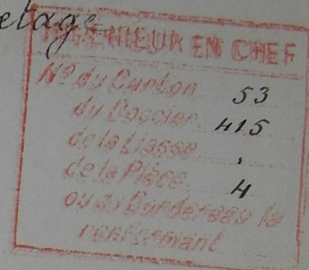 elage
INGÉNIEUR EN CHEF
N° du Carton 53
du Dossier 415
de la Liasse
de la Pièce 4
ou du Bordereau la
renfermant